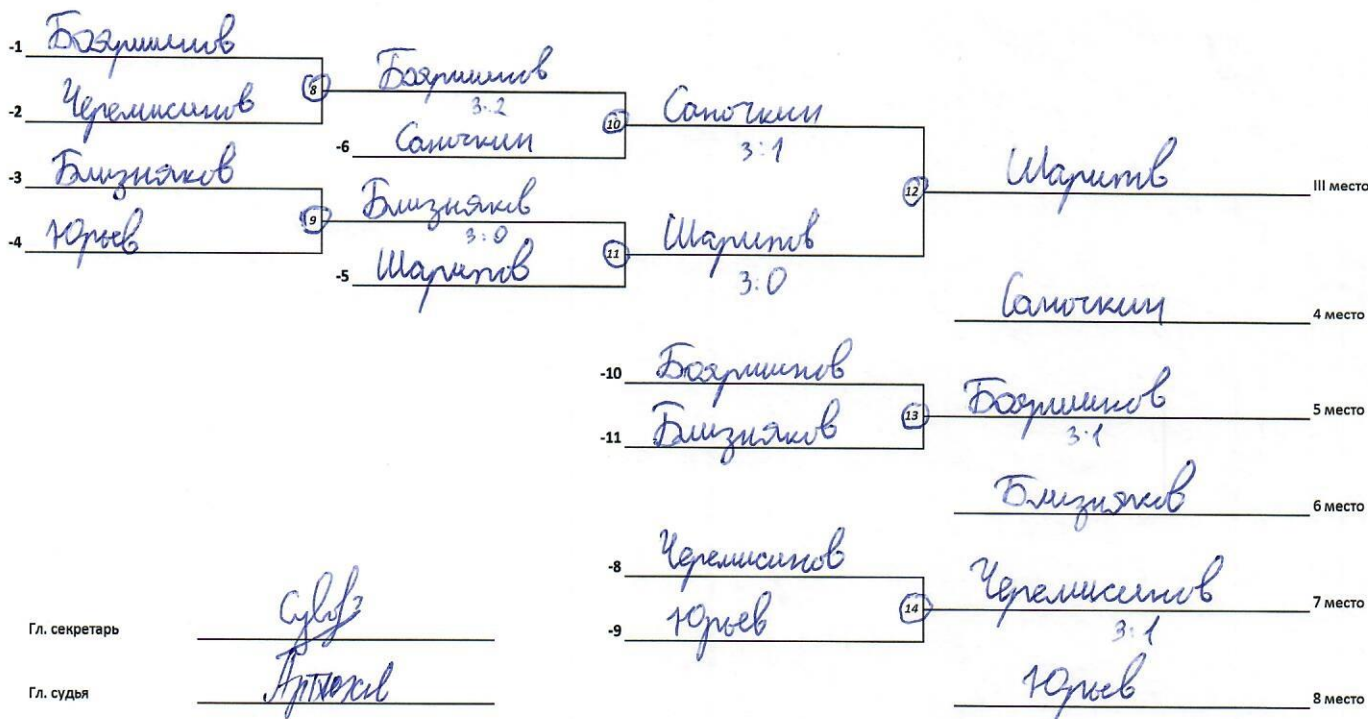 -1 Бояршинов
-2 Черемисинов
8 Бояршинов
3:2
-6 Саночкин
10 Саночкин
3:1
-3 Близняков
-4 Юрьев
9 Близняков
3:0
-5 Шарипов
11 Шарипов
3:0
12 Шарипов III место
Саночкин 4 место
-10 Бояршинов
-11 Близняков
13 Бояршинов 5 место
3:1
Близняков 6 место
-8 Черемисинов
-9 Юрьев
14 Черемисинов 7 место
3:1
Юрьев 8 место
Гл. секретарь
Гл. судья